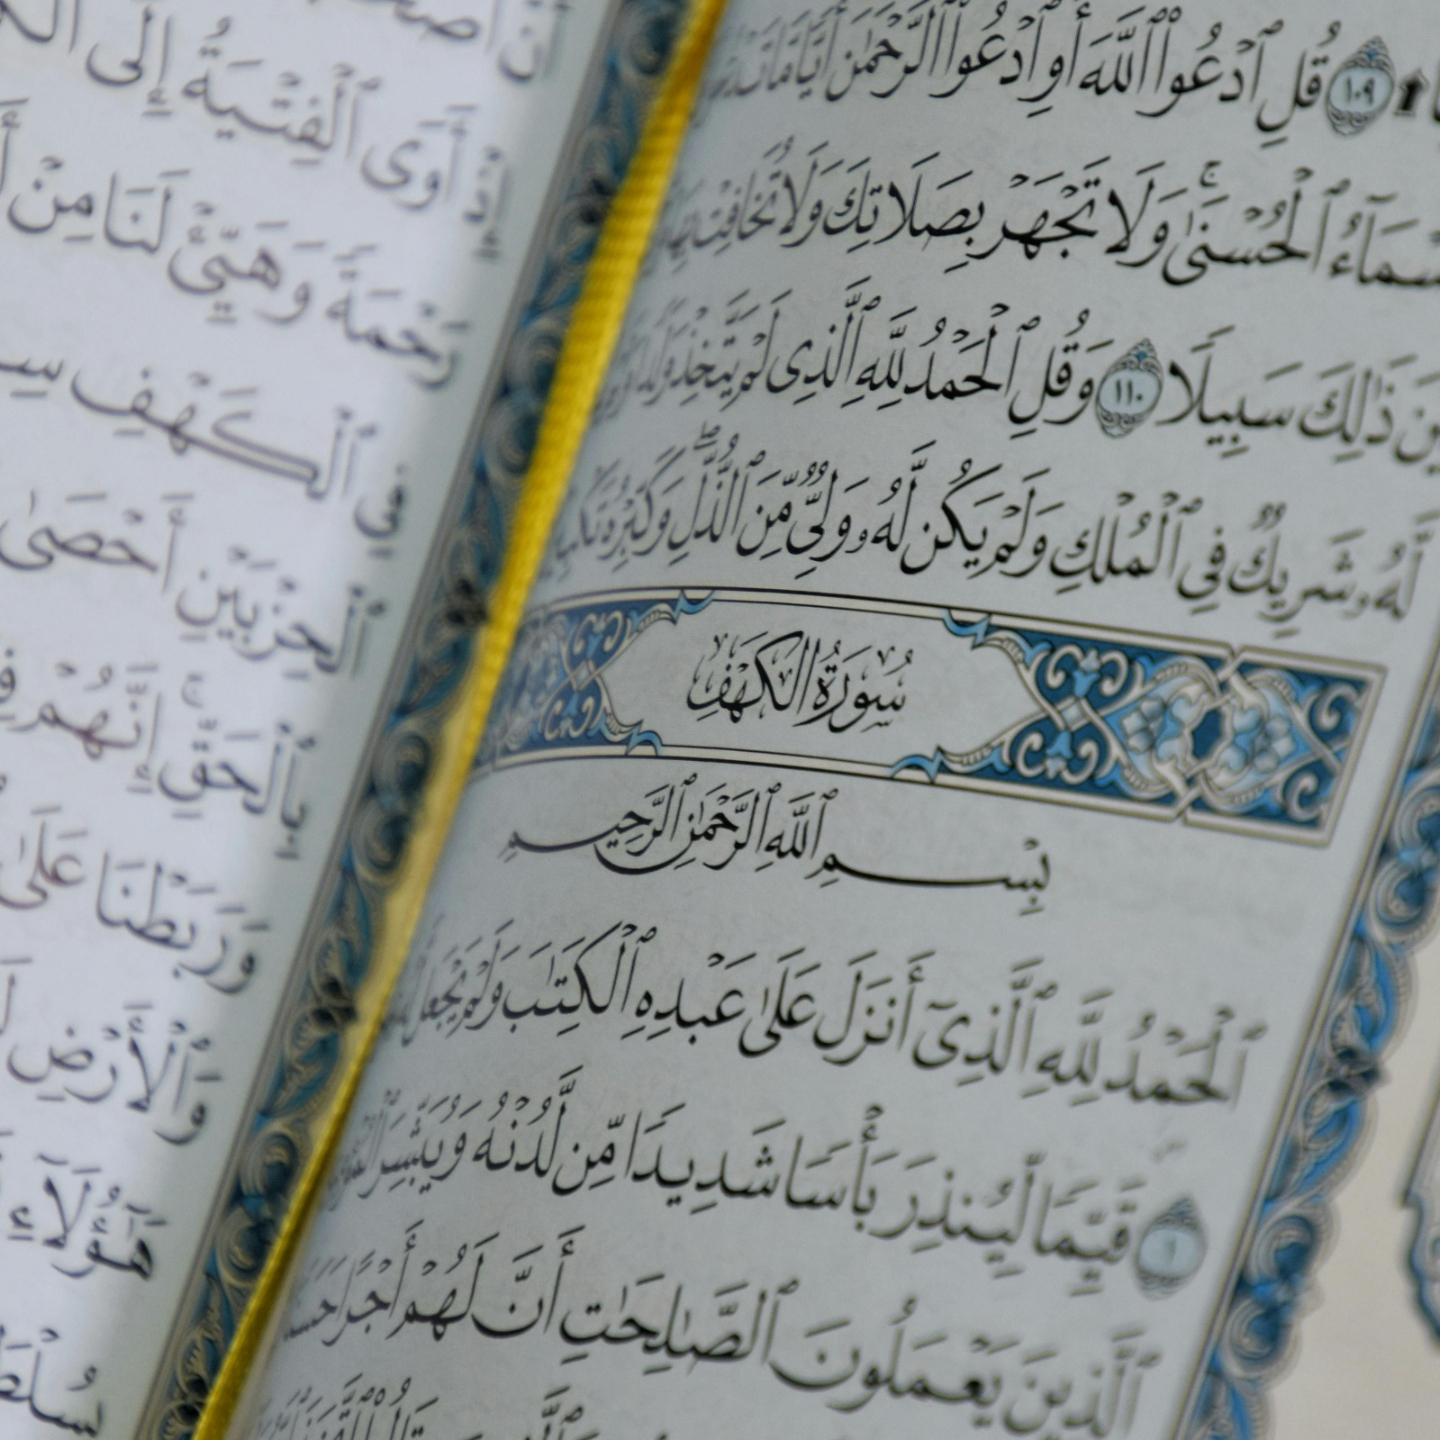 قُلِ ٱدۡعُواْ ٱللَّهَ أَوِ ٱدۡعُواْ ٱلرَّحۡمَٰنَ أَيّٗا مَّا تَدۡعُواْ ١٠٩
ٱلۡحُسۡنَىٰۚ وَلَا تَجۡهَرۡ بِصَلَاتِكَ وَلَا تُخَافِتۡ بِهَا
ذَٰلِكَ سَبِيلٗا ١١٠ وَقُلِ ٱلۡحَمۡدُ لِلَّهِ ٱلَّذِي لَمۡ يَتَّخِذۡ وَلَدٗا
لَّهُۥ شَرِيكٞ فِي ٱلۡمُلۡكِ وَلَمۡ يَكُن لَّهُۥ وَلِيّٞ مِّنَ ٱلذُّلِّۖ وَكَبِّرۡهُ تَكۡبِيرَۢا
سُورَةُ الكَهۡفِ
بِسۡمِ ٱللَّهِ ٱلرَّحۡمَٰنِ ٱلرَّحِيمِ
ٱلۡحَمۡدُ لِلَّهِ ٱلَّذِيٓ أَنزَلَ عَلَىٰ عَبۡدِهِ ٱلۡكِتَٰبَ وَلَمۡ يَجۡعَل
١ قَيِّمٗا لِّيُنذِرَ بَأۡسٗا شَدِيدٗا مِّن لَّدُنۡهُ وَيُبَشِّرَ
ٱلَّذِينَ يَعۡمَلُونَ ٱلصَّٰلِحَٰتِ أَنَّ لَهُمۡ أَجۡرًا حَسَنٗا
إِذۡ أَوَى ٱلۡفِتۡيَةُ إِلَى
رَحۡمَةٗ وَهَيِّئۡ لَنَا مِنۡ
فِي ٱلۡكَهۡفِ
ٱلۡحِزۡبَيۡنِ أَحۡصَىٰ
بِٱلۡحَقِّۚ إِنَّهُمۡ
وَرَبَطۡنَا عَلَىٰ
وَٱلۡأَرۡضِ
هَٰٓؤُلَآءِ